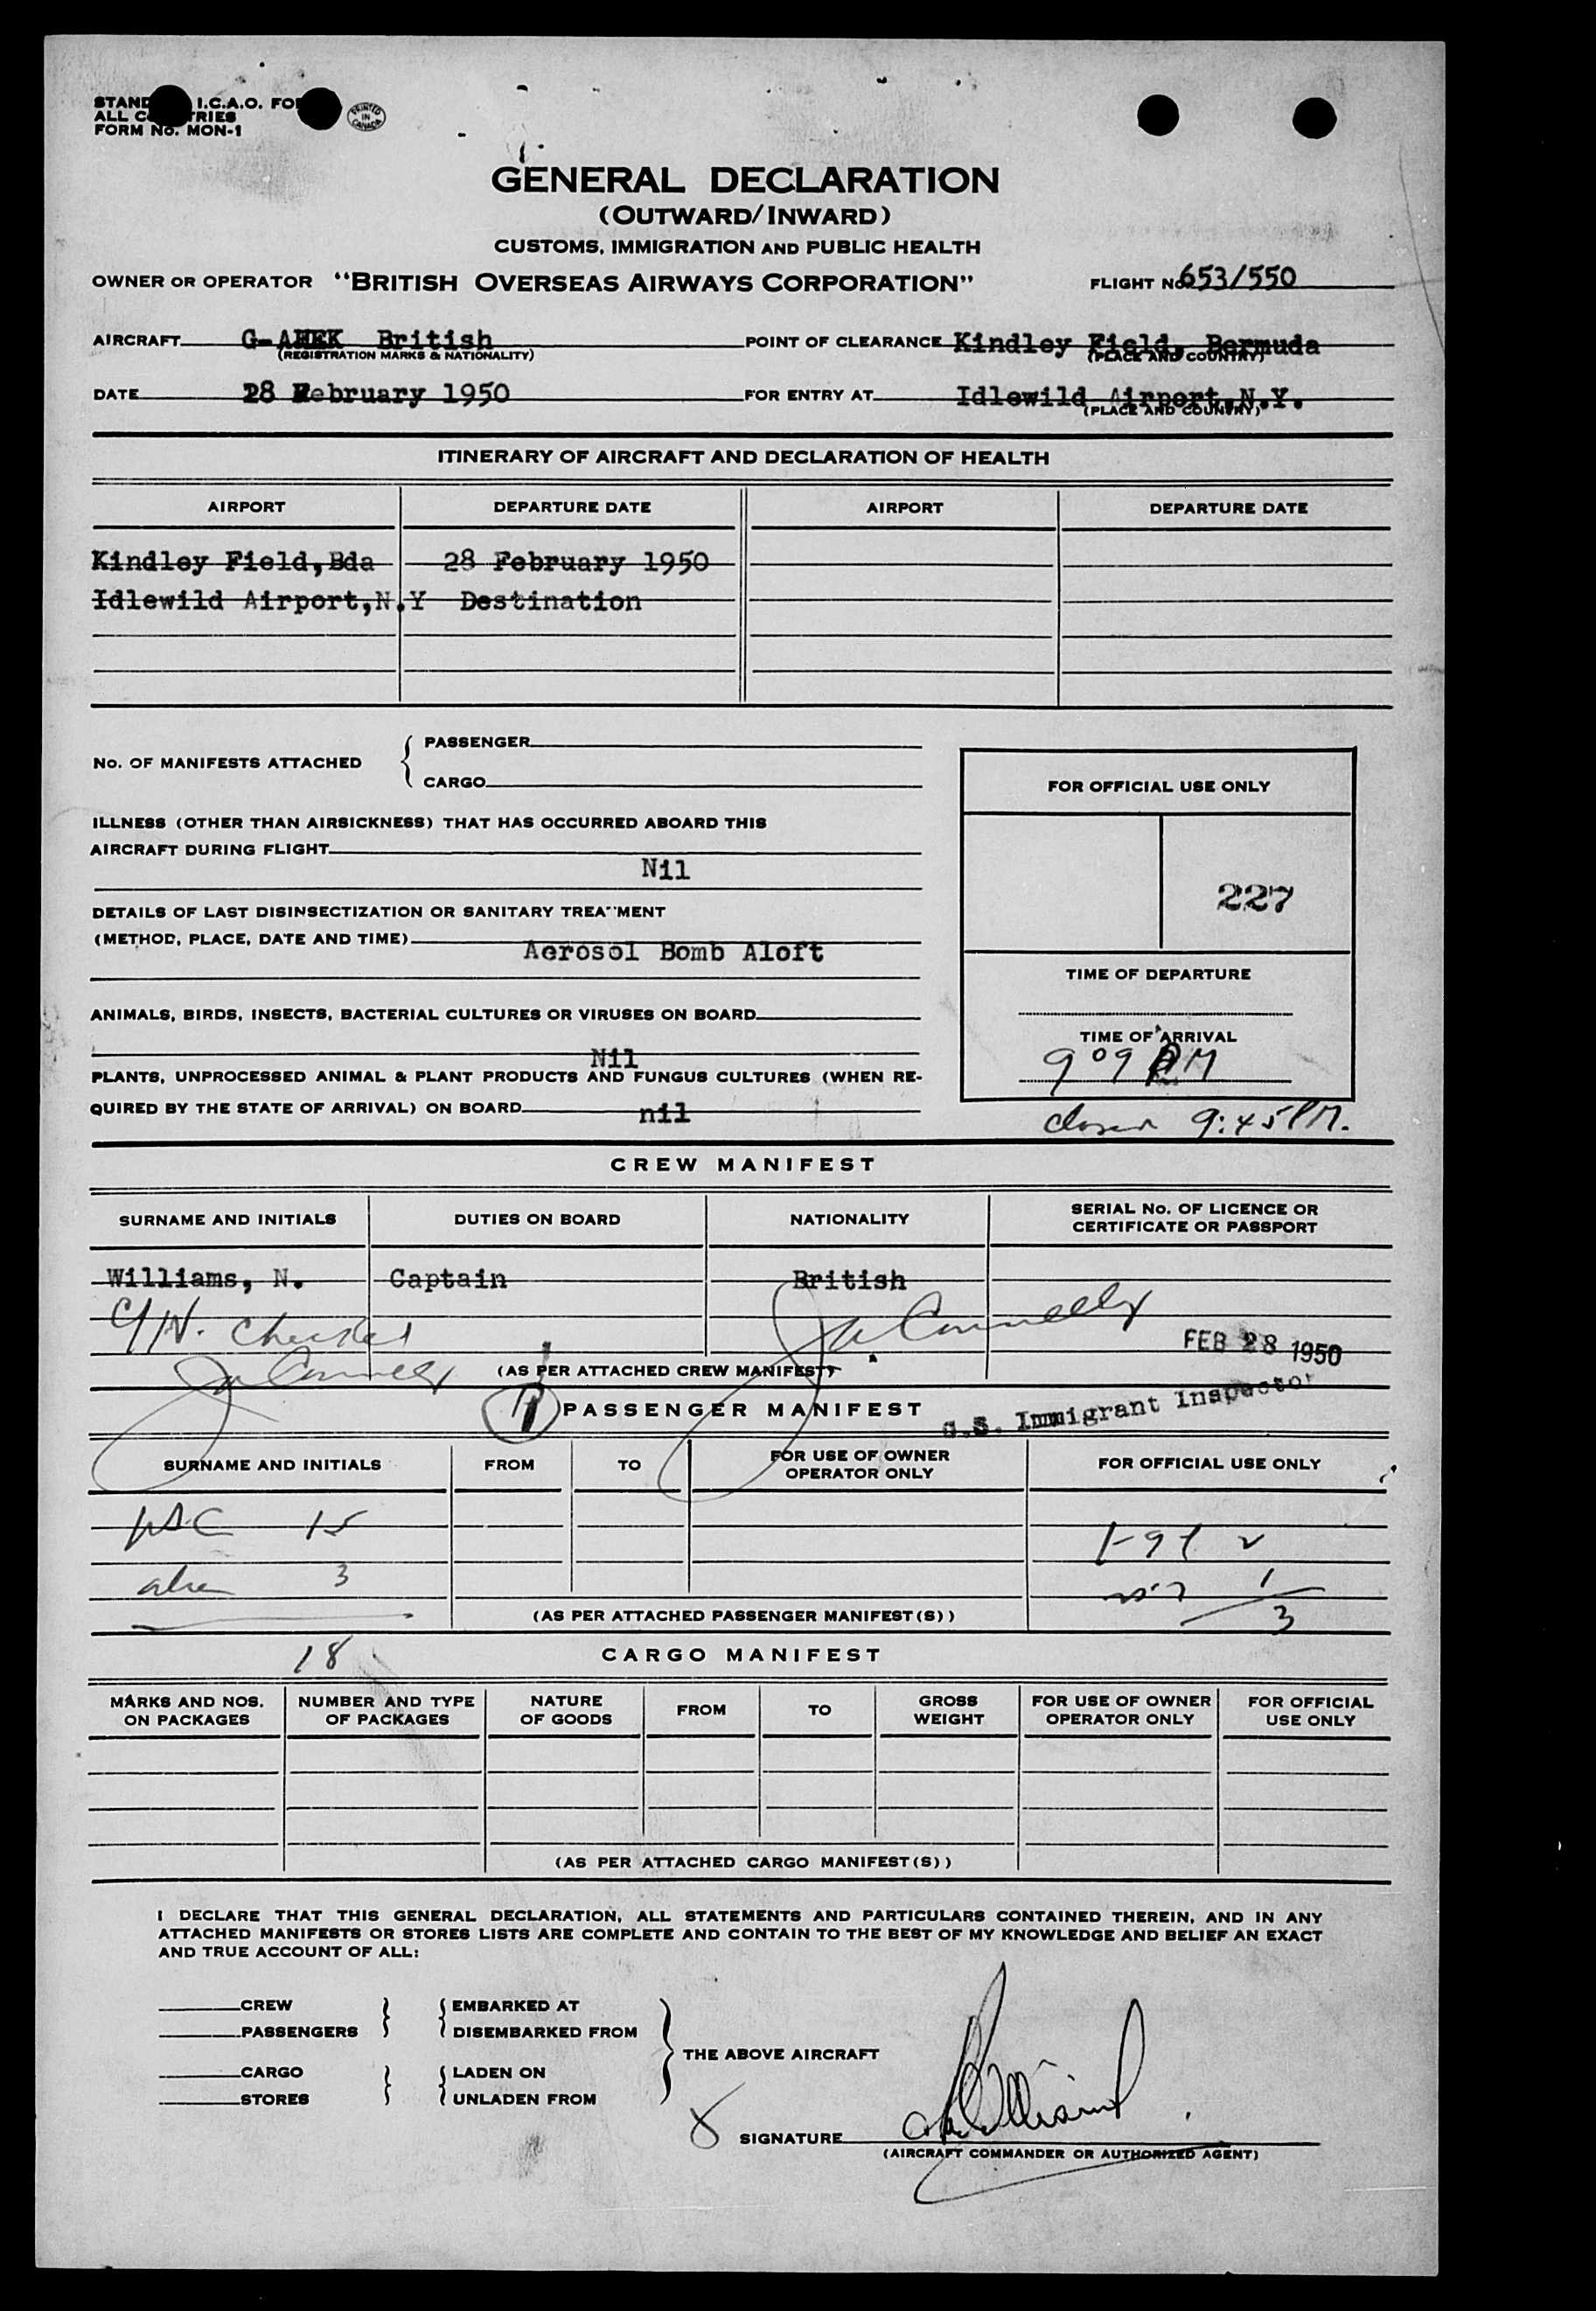 I.C.A.O.
ALL
FORM No. MON-1
PRINTED IN CANADA
GENERAL DECLARATION
(OUTWARD/INWARD)
CUSTOMS, IMMIGRATION AND PUBLIC HEALTH
OWNER OR OPERATOR "BRITISH OVERSEAS AIRWAYS CORPORATION" FLIGHT No 653/550
AIRCRAFT British POINT OF CLEARANCE Kindley Field, Bermuda
(REGISTRATION MARKS & NATIONALITY) (PLACE AND COUNTRY)
DATE 28 February 1950 FOR ENTRY AT Idlewild Airport,N.Y.
(PLACE AND COUNTRY)
ITINERARY OF AIRCRAFT AND DECLARATION OF HEALTH
AIRPORT DEPARTURE DATE AIRPORT DEPARTURE DATE
Kindley Field,Bda 28 February 1950
Idlewild Airport,N.Y Destination
No. OF MANIFESTS ATTACHED { PASSENGER
CARGO
FOR OFFICIAL USE ONLY
ILLNESS (OTHER THAN AIRSICKNESS) THAT HAS OCCURRED ABOARD THIS
AIRCRAFT DURING FLIGHT
Nil
227
DETAILS OF LAST DISINSECTIZATION OR SANITARY TREATMENT
(METHOD, PLACE, DATE AND TIME)
Aerosol Bomb Aloft
TIME OF DEPARTURE
ANIMALS, BIRDS, INSECTS, BACTERIAL CULTURES OR VIRUSES ON BOARD
TIME OF ARRIVAL
Nil
9 09 PM
PLANTS, UNPROCESSED ANIMAL & PLANT PRODUCTS AND FUNGUS CULTURES (WHEN RE-
QUIRED BY THE STATE OF ARRIVAL) ON BOARD nil
9:45 PM.
CREW MANIFEST
SURNAME AND INITIALS DUTIES ON BOARD NATIONALITY SERIAL No. OF LICENCE OR CERTIFICATE OR PASSPORT
Williams, N. Captain British
FEB 28 1950
(AS PER ATTACHED CREW MANIFEST)
U.S. Immigrant Inspector
PASSENGER MANIFEST
SURNAME AND INITIALS FROM TO FOR USE OF OWNER OPERATOR ONLY FOR OFFICIAL USE ONLY
15
3
3
(AS PER ATTACHED PASSENGER MANIFEST(S))
18
CARGO MANIFEST
MARKS AND NOS. ON PACKAGES NUMBER AND TYPE OF PACKAGES NATURE OF GOODS FROM TO GROSS WEIGHT FOR USE OF OWNER OPERATOR ONLY FOR OFFICIAL USE ONLY
(AS PER ATTACHED CARGO MANIFEST(S))
I DECLARE THAT THIS GENERAL DECLARATION, ALL STATEMENTS AND PARTICULARS CONTAINED THEREIN, AND IN ANY
ATTACHED MANIFESTS OR STORES LISTS ARE COMPLETE AND CONTAIN TO THE BEST OF MY KNOWLEDGE AND BELIEF AN EXACT
AND TRUE ACCOUNT OF ALL:
CREW EMBARKED AT
PASSENGERS DISEMBARKED FROM
THE ABOVE AIRCRAFT
CARGO LADEN ON
STORES UNLADEN FROM
SIGNATURE
(AIRCRAFT COMMANDER OR AUTHORIZED AGENT)